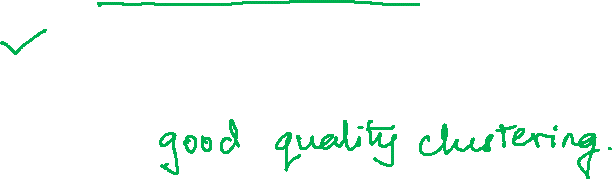 good quality clustering.